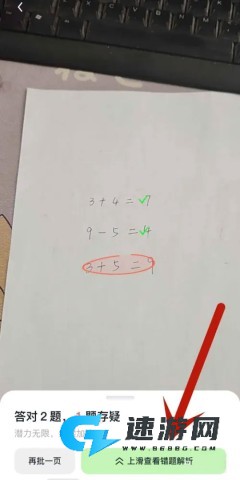 3+4=7
9-5=4
3+5=9
答对2题，1题存疑
潜力无限，
再批一页
上滑查看错题解析
速游网